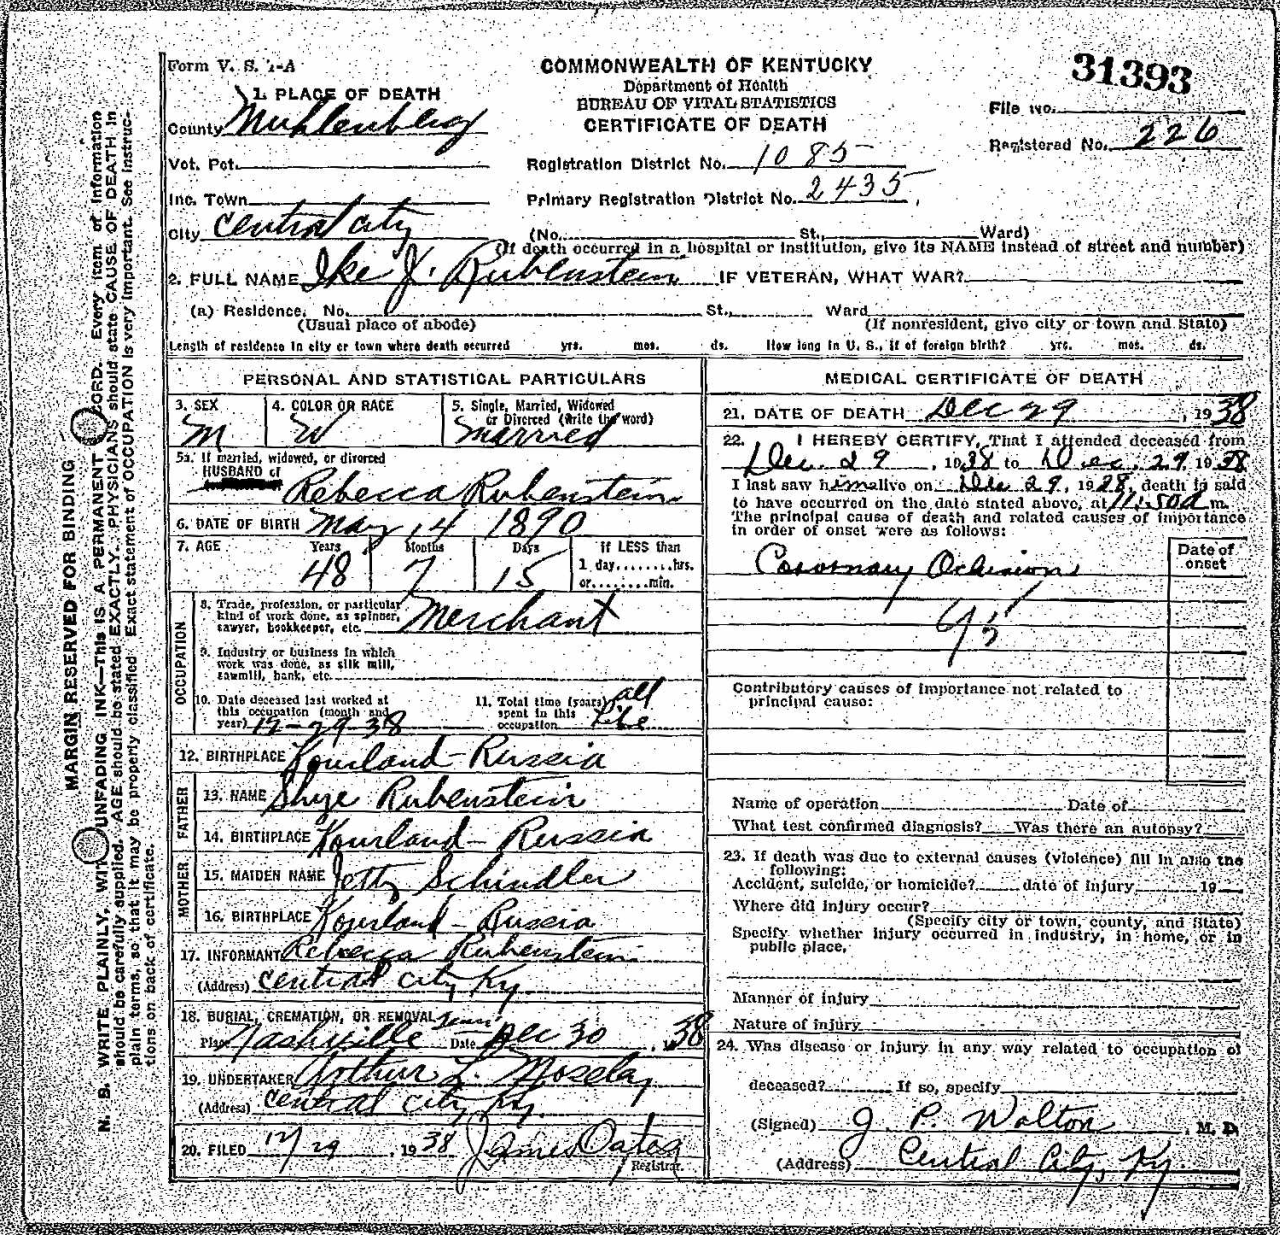 Form V. S. 1-A
COMMONWEALTH OF KENTUCKY
Department of Health
BUREAU OF VITAL STATISTICS
CERTIFICATE OF DEATH
31393
File No.
Registered No. 226
1. PLACE OF DEATH
County Muhlenberg
Vot. Pct.
Registration District No. 1085
Inc. Town
Primary Registration District No. 2435
City Central City
(No. St., Ward)
(If death occurred in a hospital or institution, give its NAME instead of street and number)
2. FULL NAME Ike J. Rubenstein IF VETERAN, WHAT WAR?
(a) Residence. No. St., Ward
(Usual place of abode) (If nonresident, give city or town and State)
Length of residence in city or town where death occurred yrs. mos. ds. How long in U. S., if of foreign birth? yrs. mos. ds.
PERSONAL AND STATISTICAL PARTICULARS
3. SEX M
4. COLOR OR RACE W
5. Single, Married, Widowed
or Divorced (Write the word)
Married
5a. If married, widowed, or divorced
HUSBAND of
Rebecca Rubenstein
6. DATE OF BIRTH May 14 1890
7. AGE Years 48 Months 7 Days 15
If LESS than
1 day........hrs.
or........min.
OCCUPATION
8. Trade, profession, or particular
kind of work done, as spinner,
sawyer, bookkeeper, etc. Merchant
9. Industry or business in which
work was done, as silk mill,
sawmill, bank, etc.
10. Date deceased last worked at
this occupation (month and
year) 12-29-38
11. Total time (years)
spent in this
occupation all life
12. BIRTHPLACE Kourland-Russia
FATHER
13. NAME Shye Rubenstein
14. BIRTHPLACE Kourland-Russia
MOTHER
15. MAIDEN NAME Jetty Schindler
16. BIRTHPLACE Kourland-Russia
17. INFORMANT Rebecca Rubenstein
(Address) Central City Ky.
18. BURIAL, CREMATION, OR REMOVAL
Place Nashville Tenn Date Dec 30, 1938
19. UNDERTAKER Arthur L. Moseley
(Address) Central City Ky.
20. FILED 12/29, 1938 James Oates
Registrar.
MEDICAL CERTIFICATE OF DEATH
21. DATE OF DEATH Dec 29, 1938
22. I HEREBY CERTIFY, That I attended deceased from
Dec. 29, 1938 to Dec. 29 1938
I last saw him alive on Dec 29, 1938, death is said
to have occurred on the date stated above, at 11:50a m.
The principal cause of death and related causes of importance
in order of onset were as follows:
Date of
onset
Coronary Oclusion
Contributory causes of importance not related to
principal cause:
Name of operation Date of
What test confirmed diagnosis? Was there an autopsy?
23. If death was due to external causes (violence) fill in also the
following:
Accident, suicide, or homicide? date of injury 19
Where did injury occur?
(Specify city or town, county, and State)
Specify whether injury occurred in industry, in home, or in
public place.
Manner of injury
Nature of injury
24. Was disease or injury in any way related to occupation of
deceased? If so, specify
(Signed) J. P. Walton, M. D.
(Address) Central City, Ky.
MARGIN RESERVED FOR BINDING
N. B. WRITE PLAINLY, WITH UNFADING INK—This is A PERMANENT RECORD. Every item of information
should be carefully supplied. AGE should be stated EXACTLY. PHYSICIANS should state CAUSE OF DEATH in
plain terms, so that it may be properly classified. Exact statement of OCCUPATION is very important. See instruc-
tions on back of certificate.